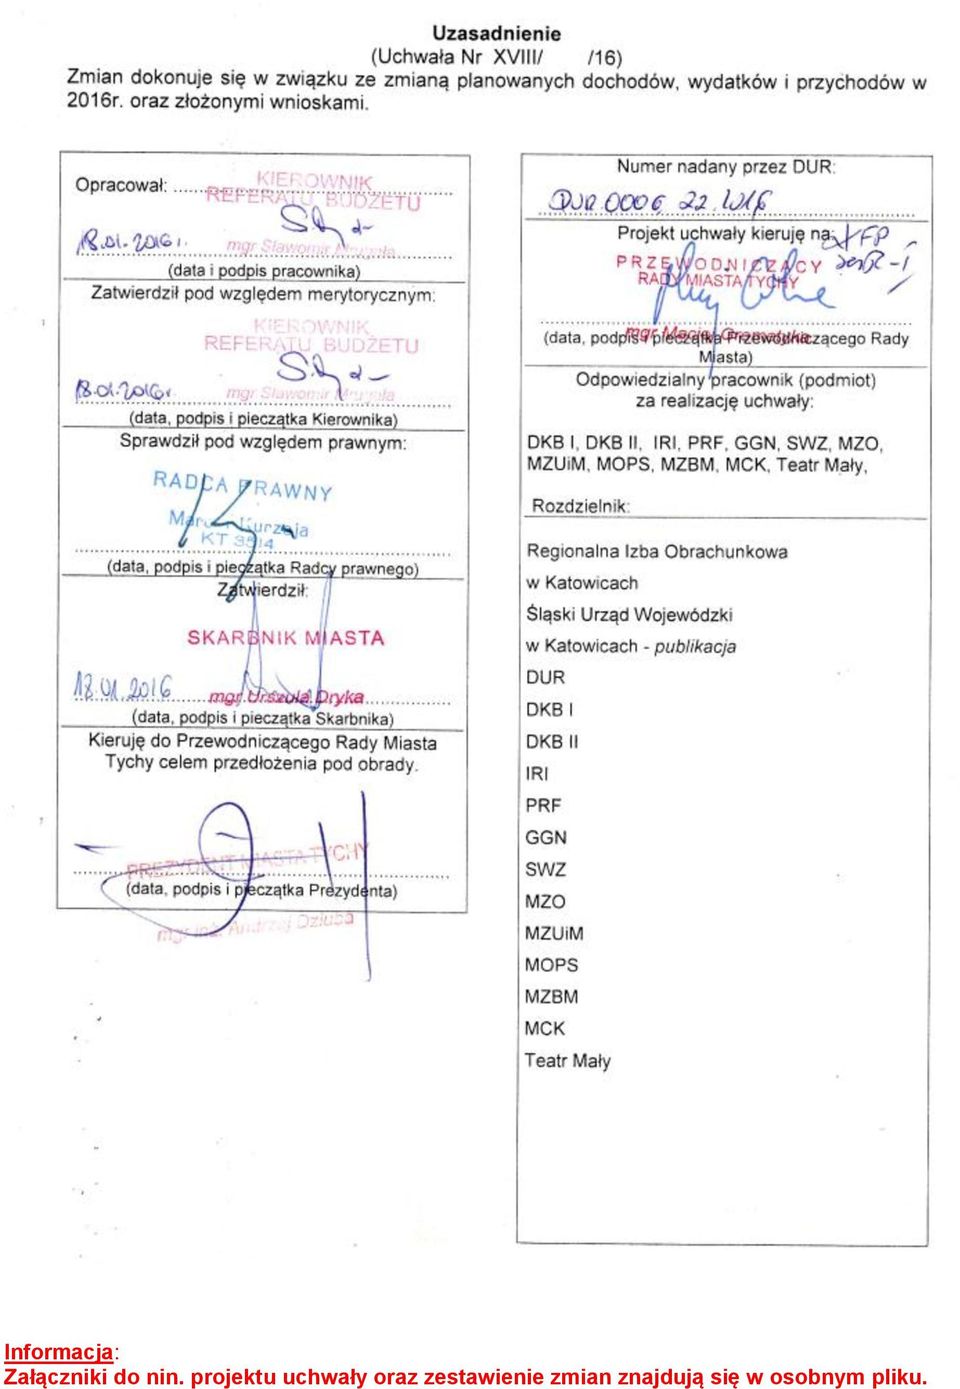 Uzasadnienie
(Uchwała Nr XVIII/ /16)
Zmian dokonuje się w związku ze zmianą planowanych dochodów, wydatków i przychodów w
2016r. oraz złożonymi wnioskami.
Opracował:
KIEROWNIK
REFERATU BUDŻETU
18.01.2016r.
mgr Sławomir
(data i podpis pracownika)
Zatwierdził pod względem merytorycznym:
KIEROWNIK
REFERATU BUDŻETU
18.01.2016r.
mgr Sławomir
(data, podpis i pieczątka Kierownika)
Sprawdził pod względem prawnym:
RADCA PRAWNY
Kurzeja
KT 3514
(data, podpis i pieczątka Radcy prawnego)
Zatwierdził:
SKARBNIK MIASTA
18.01.2016
mgr Urszula Dryka
(data, podpis i pieczątka Skarbnika)
Kieruję do Przewodniczącego Rady Miasta
Tychy celem przedłożenia pod obrady.
PREZYDENT MIASTA TYCHY
(data, podpis i pieczątka Prezydenta)
mgr inż. Andrzej Dziuba
Numer nadany przez DUR:
DUR.0006.22.2016
Projekt uchwały kieruję na:
PRZEWODNICZĄCY
RADY MIASTA TYCHY
mgr Maciej Gramatyka
(data, podpis i pieczątka Przewodniczącego Rady
Miasta)
Odpowiedzialny pracownik (podmiot)
za realizację uchwały:
DKB I, DKB II, IRI, PRF, GGN, SWZ, MZO,
MZUiM, MOPS, MZBM, MCK, Teatr Mały,
Rozdzielnik:
Regionalna Izba Obrachunkowa
w Katowicach
Śląski Urząd Wojewódzki
w Katowicach - publikacja
DUR
DKB I
DKB II
IRI
PRF
GGN
SWZ
MZO
MZUiM
MOPS
MZBM
MCK
Teatr Mały
Informacja:
Załączniki do nin. projektu uchwały oraz zestawienie zmian znajdują się w osobnym pliku.